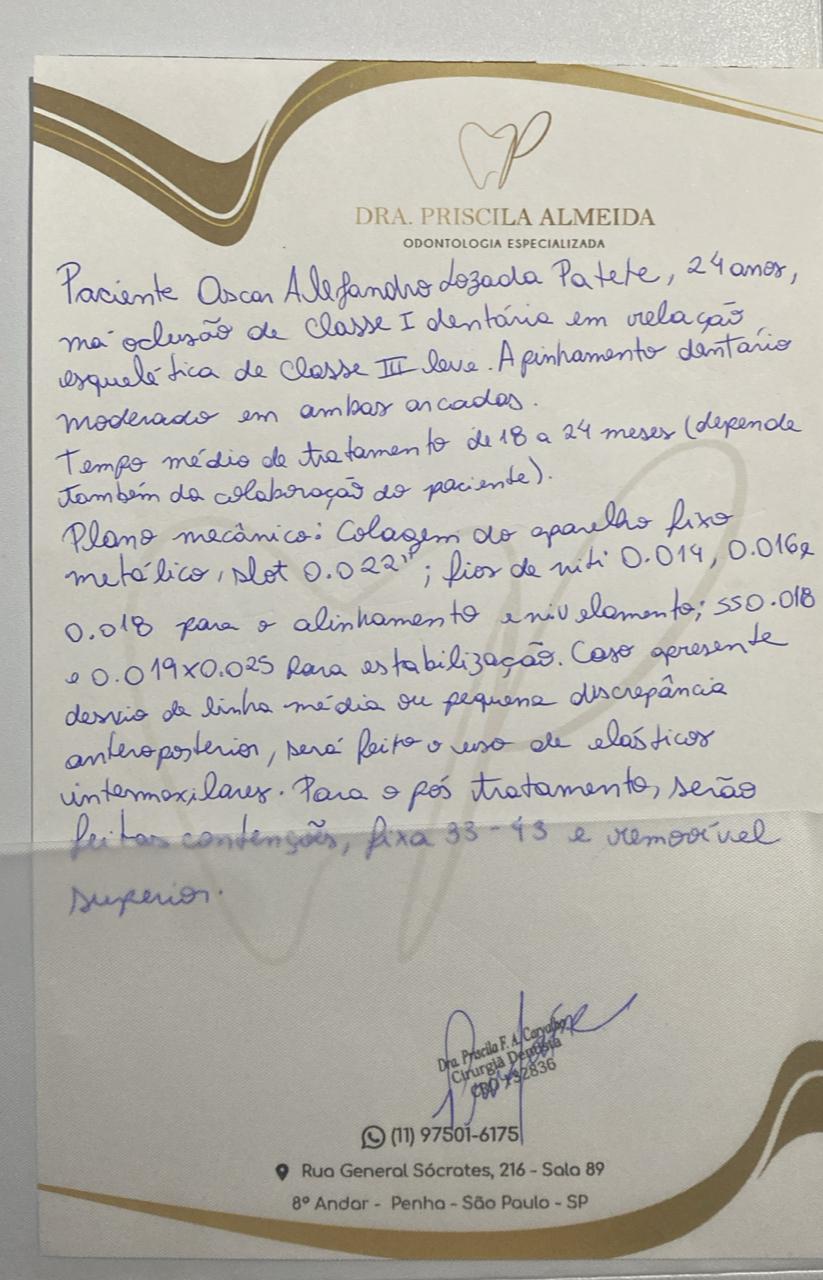 DRA. PRISCILA ALMEIDA
ODONTOLOGIA ESPECIALIZADA
Paciente Oscar Alejandro Lozada Patete, 24 anos,
má oclusão de Classe I dentária em relação
esquelética de Classe III leve. Apinhamento dentário
moderado em ambas arcadas.
Tempo médio de tratamento de 18 a 24 meses (depende
também da colaboração do paciente).
Plano mecânico: Colagem do aparelho fixo
metálico, slot 0.022"; fios de niti 0.014, 0.016 e
0.018 para o alinhamento e nivelamento; SS 0.018
e 0.019x0.025 para estabilização. Caso apresente
desvio da linha média ou pequena discrepância
anteroposterior, será feito o uso de elásticos
intermaxilares. Para o pós tratamento, serão
feitas contenções, fixa 33-43 e removível
superior.
Dra. Priscila F. A. Carvalho
Cirurgiã Dentista
CRO 132836
(11) 97501-6175
Rua General Sócrates, 216 - Sala 89
8º Andar - Penha - São Paulo - SP